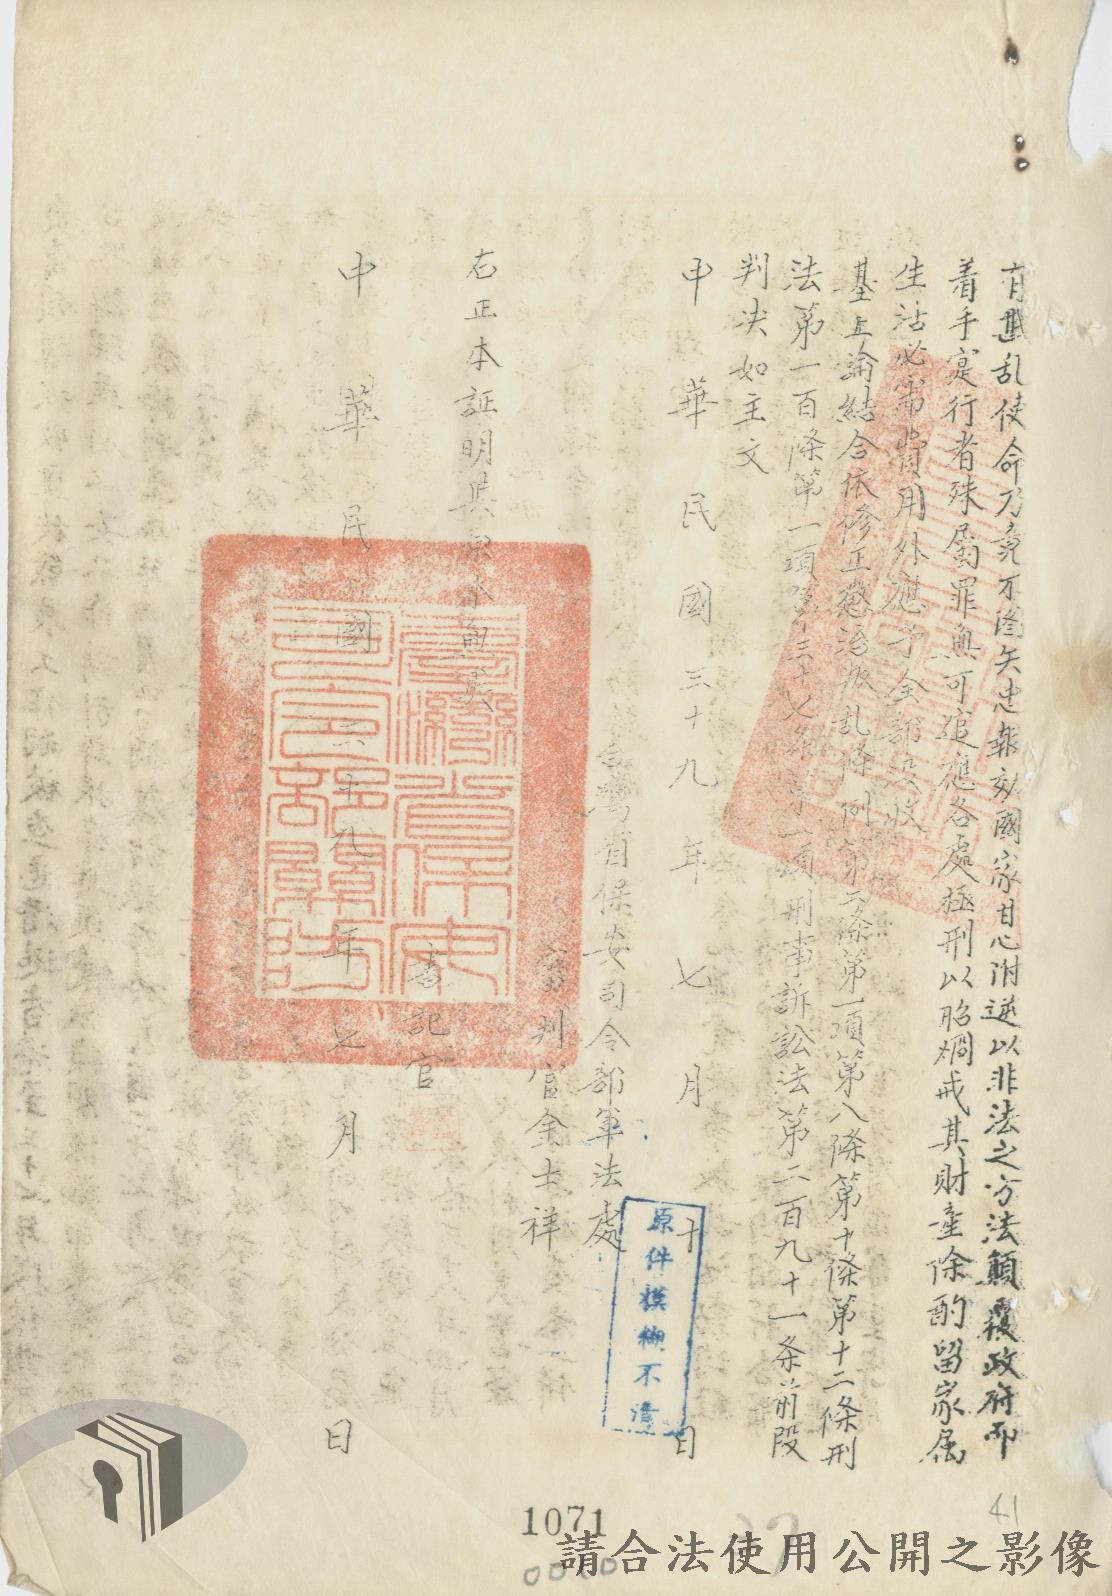 有戡乱使命乃竟不图矢忠報効國家甘心附逆以非法之方法顛覆政府而
着手寔行者殊屬罪無可逭應各處極刑以昭烱戒其財產除酌留家属
生活必需費用外應予全部没收
基上論結合依修正懲治叛乱條例第二條第一項第八條第十條第十二條刑
法第一百條第一項第三十七条第一項刑事訴訟法第二百九十一条前段
判决如主文
中華民國三十九年七月十日
台灣省保安司令部軍法處
審判官金士祥
右正本証明與原本無異
書記官
中華民國三十九年七月日
臺灣省保安司令部軍法
原件模糊不清
41
1071
請合法使用公開之影像